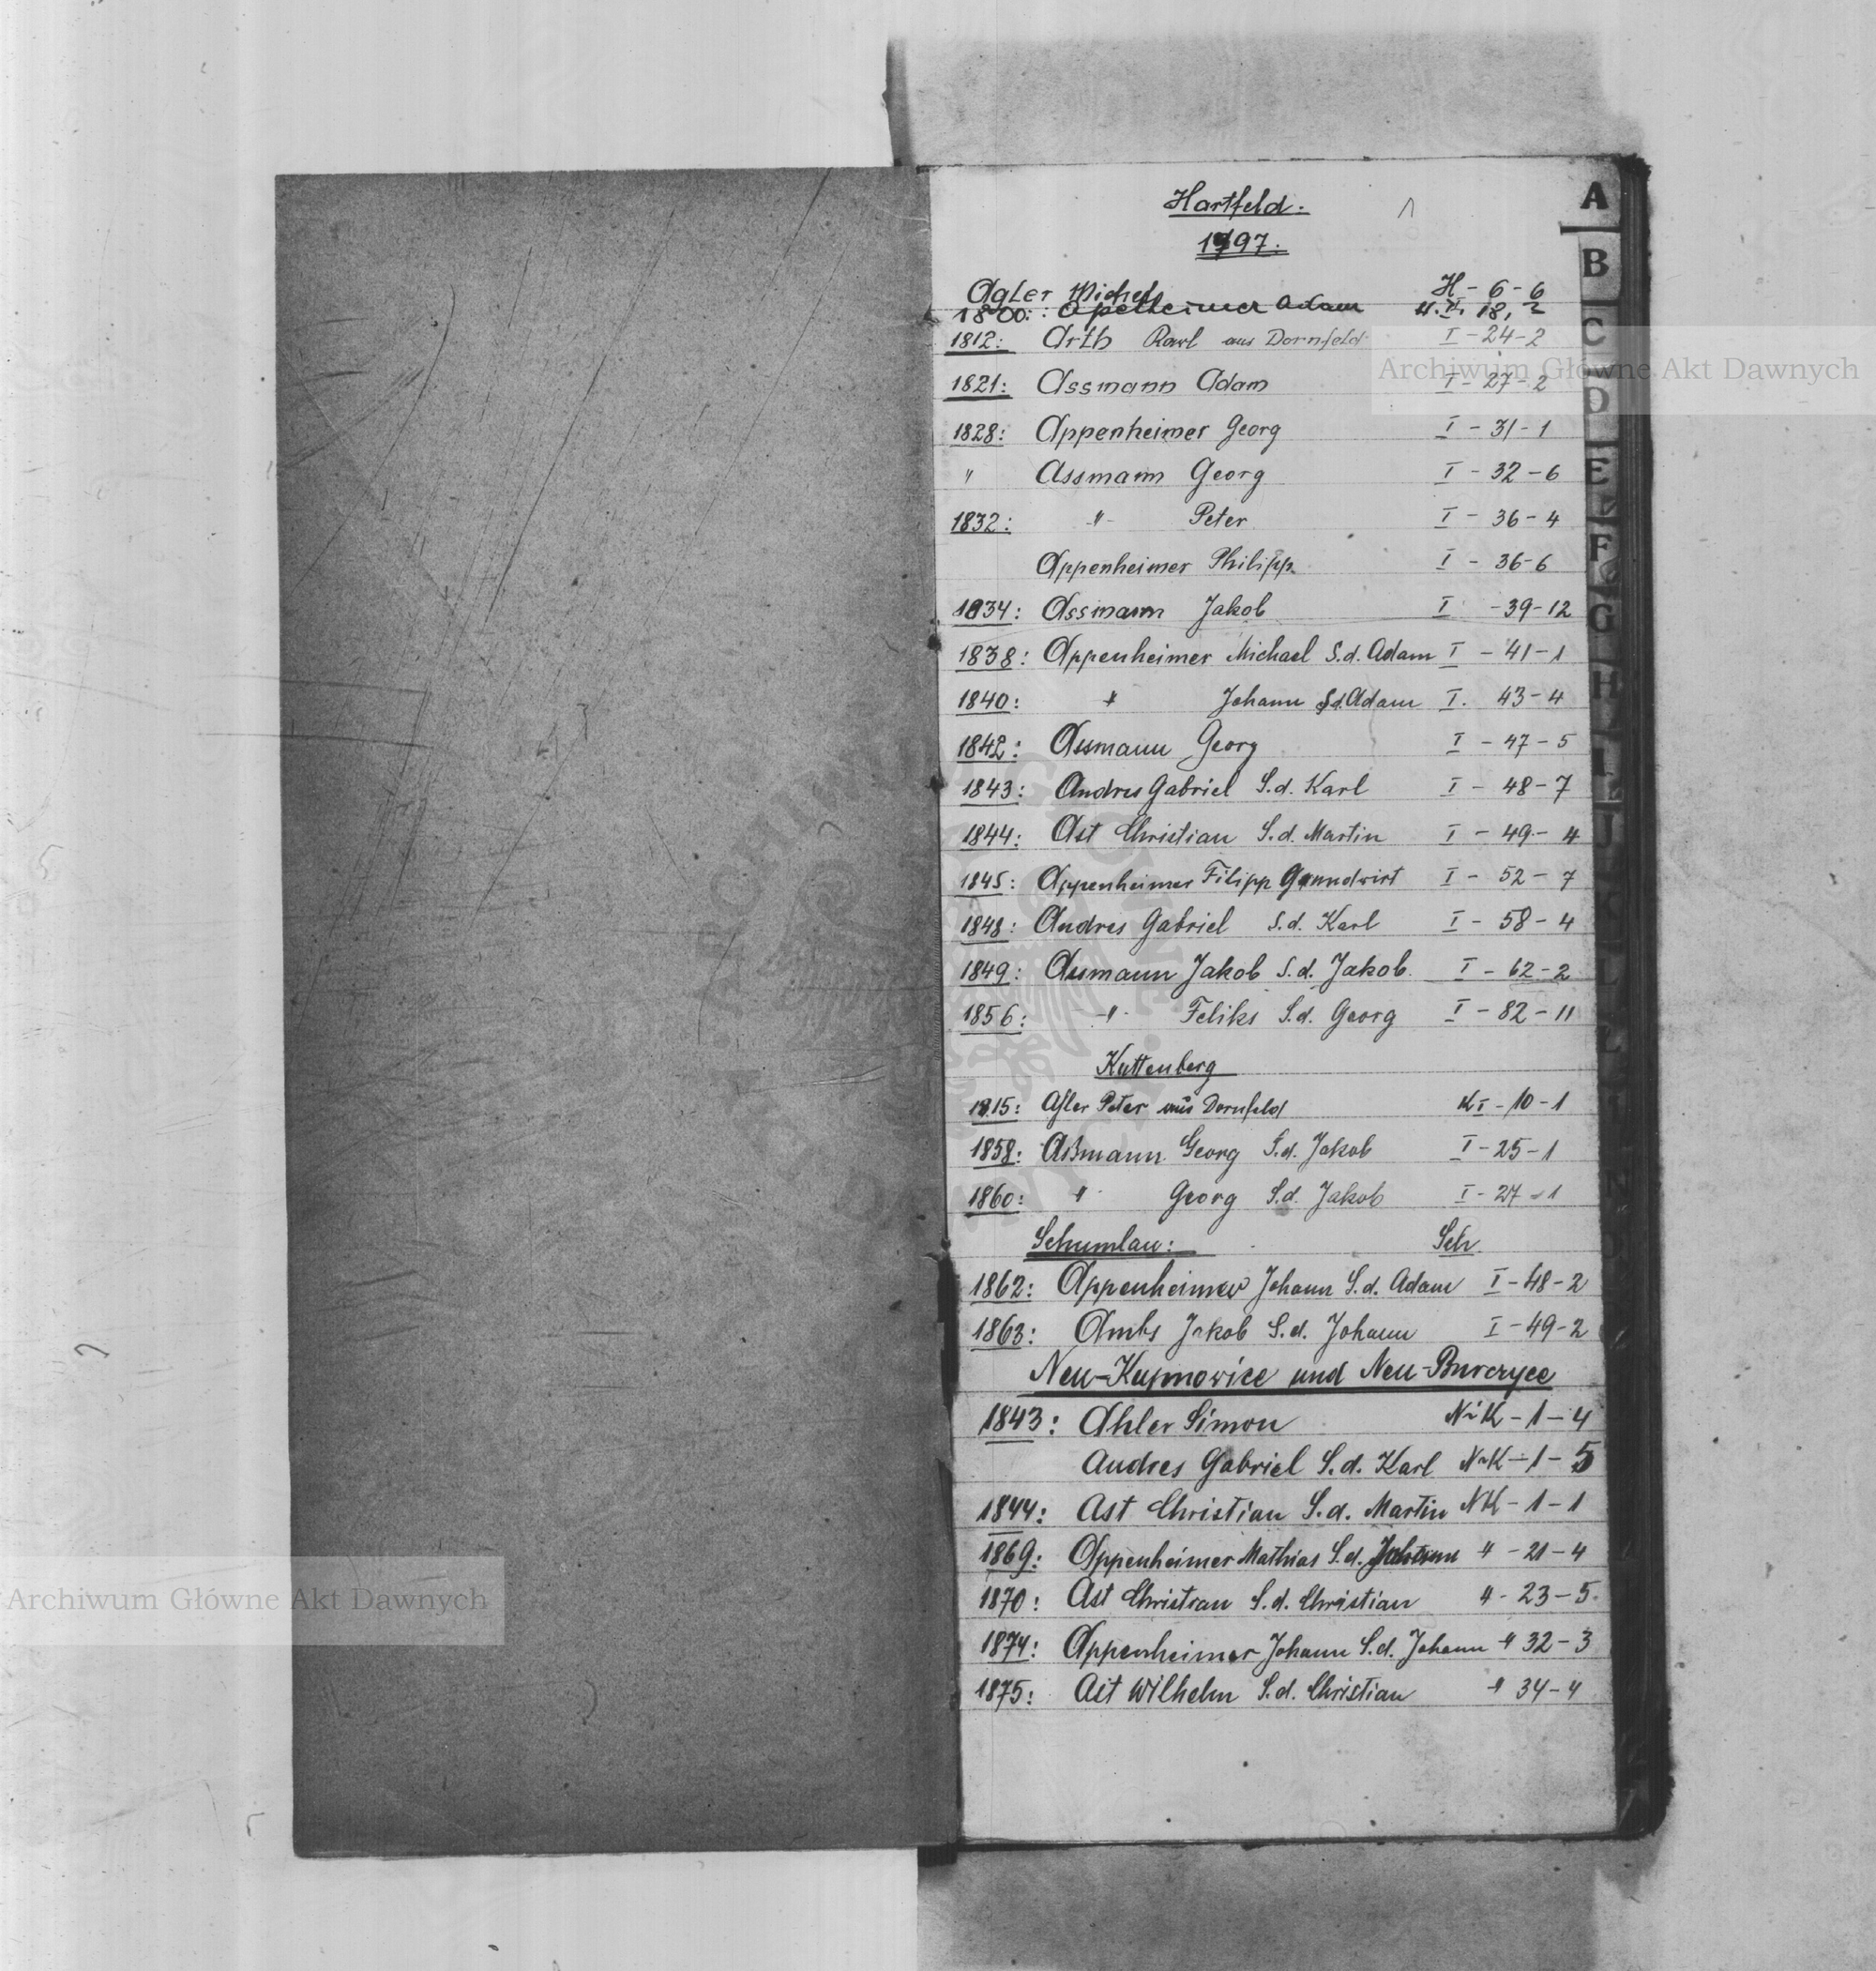 Hartfeld. 1
1797.
Agler Michel H - 6 - 6
1800: Apelheimer Adam H. I. 18, 2
1812: Arth Karl aus Dornfeld I - 24 - 2
1821: Assmann Adam I - 27 - 2
1828: Appenheimer Georg I - 31 - 1
" Assmann Georg I - 32 - 6
1832: -"- Peter I - 36 - 4
Appenheimer Philipp I - 36 - 6
1834: Assmann Jakob I - 39 - 12
1838: Appenheimer Michael S.d. Adam I - 41 - 1
1840: " Johann S.d. Adam I. 43 - 4
1842: Assmann Georg I - 47 - 5
1843: Andres Gabriel S.d. Karl I - 48 - 7
1844: Ast Christian S.d. Martin I - 49 - 4
1845: Appenheimer Filipp Grundwirt I - 52 - 7
1848: Andres Gabriel S.d. Karl I - 58 - 4
1849: Assmann Jakob S.d. Jakob I - 62 - 2
1856: -"- Feliks S.d. Georg I - 82 - 11
Kuttenberg
1815: Agler Peter aus Dornfeld K I - 10 - 1
1858: Aßmann Georg S.d. Jakob I - 25 - 1
1860: " Georg S.d. Jakob I - 27 - 1
Schumlau: Sch.
1862: Appenheimer Johann S.d. Adam I - 48 - 2
1863: Ambs Jakob S.d. Johann I - 49 - 2
Neu-Kupnowice und Neu-Burczyce
1843: Ahler Simon N-K - 1 - 4
Andres Gabriel S.d. Karl N-K - 1 - 5
1844: Ast Christian S.d. Martin NK - 1 - 1
1869: Appenheimer Mathias S.d. Johann " - 21 - 4
1870: Ast Christian S.d. Christian " - 23 - 5.
1874: Appenheimer Johann S.d. Johann " 32 - 3
1875: Ast Wilhelm S.d. Christian " 34 - 4
A
B
C
D
E
F
G
H
I
J
Archiwum Główne Akt Dawnych
Archiwum Główne Akt Dawnych